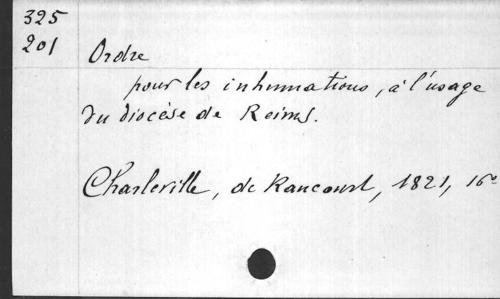 325
201
Ordre
pour les inhumations, à l'usage
du diocèse de Reims.
Charleville, de Rancourt, 1821, 16°